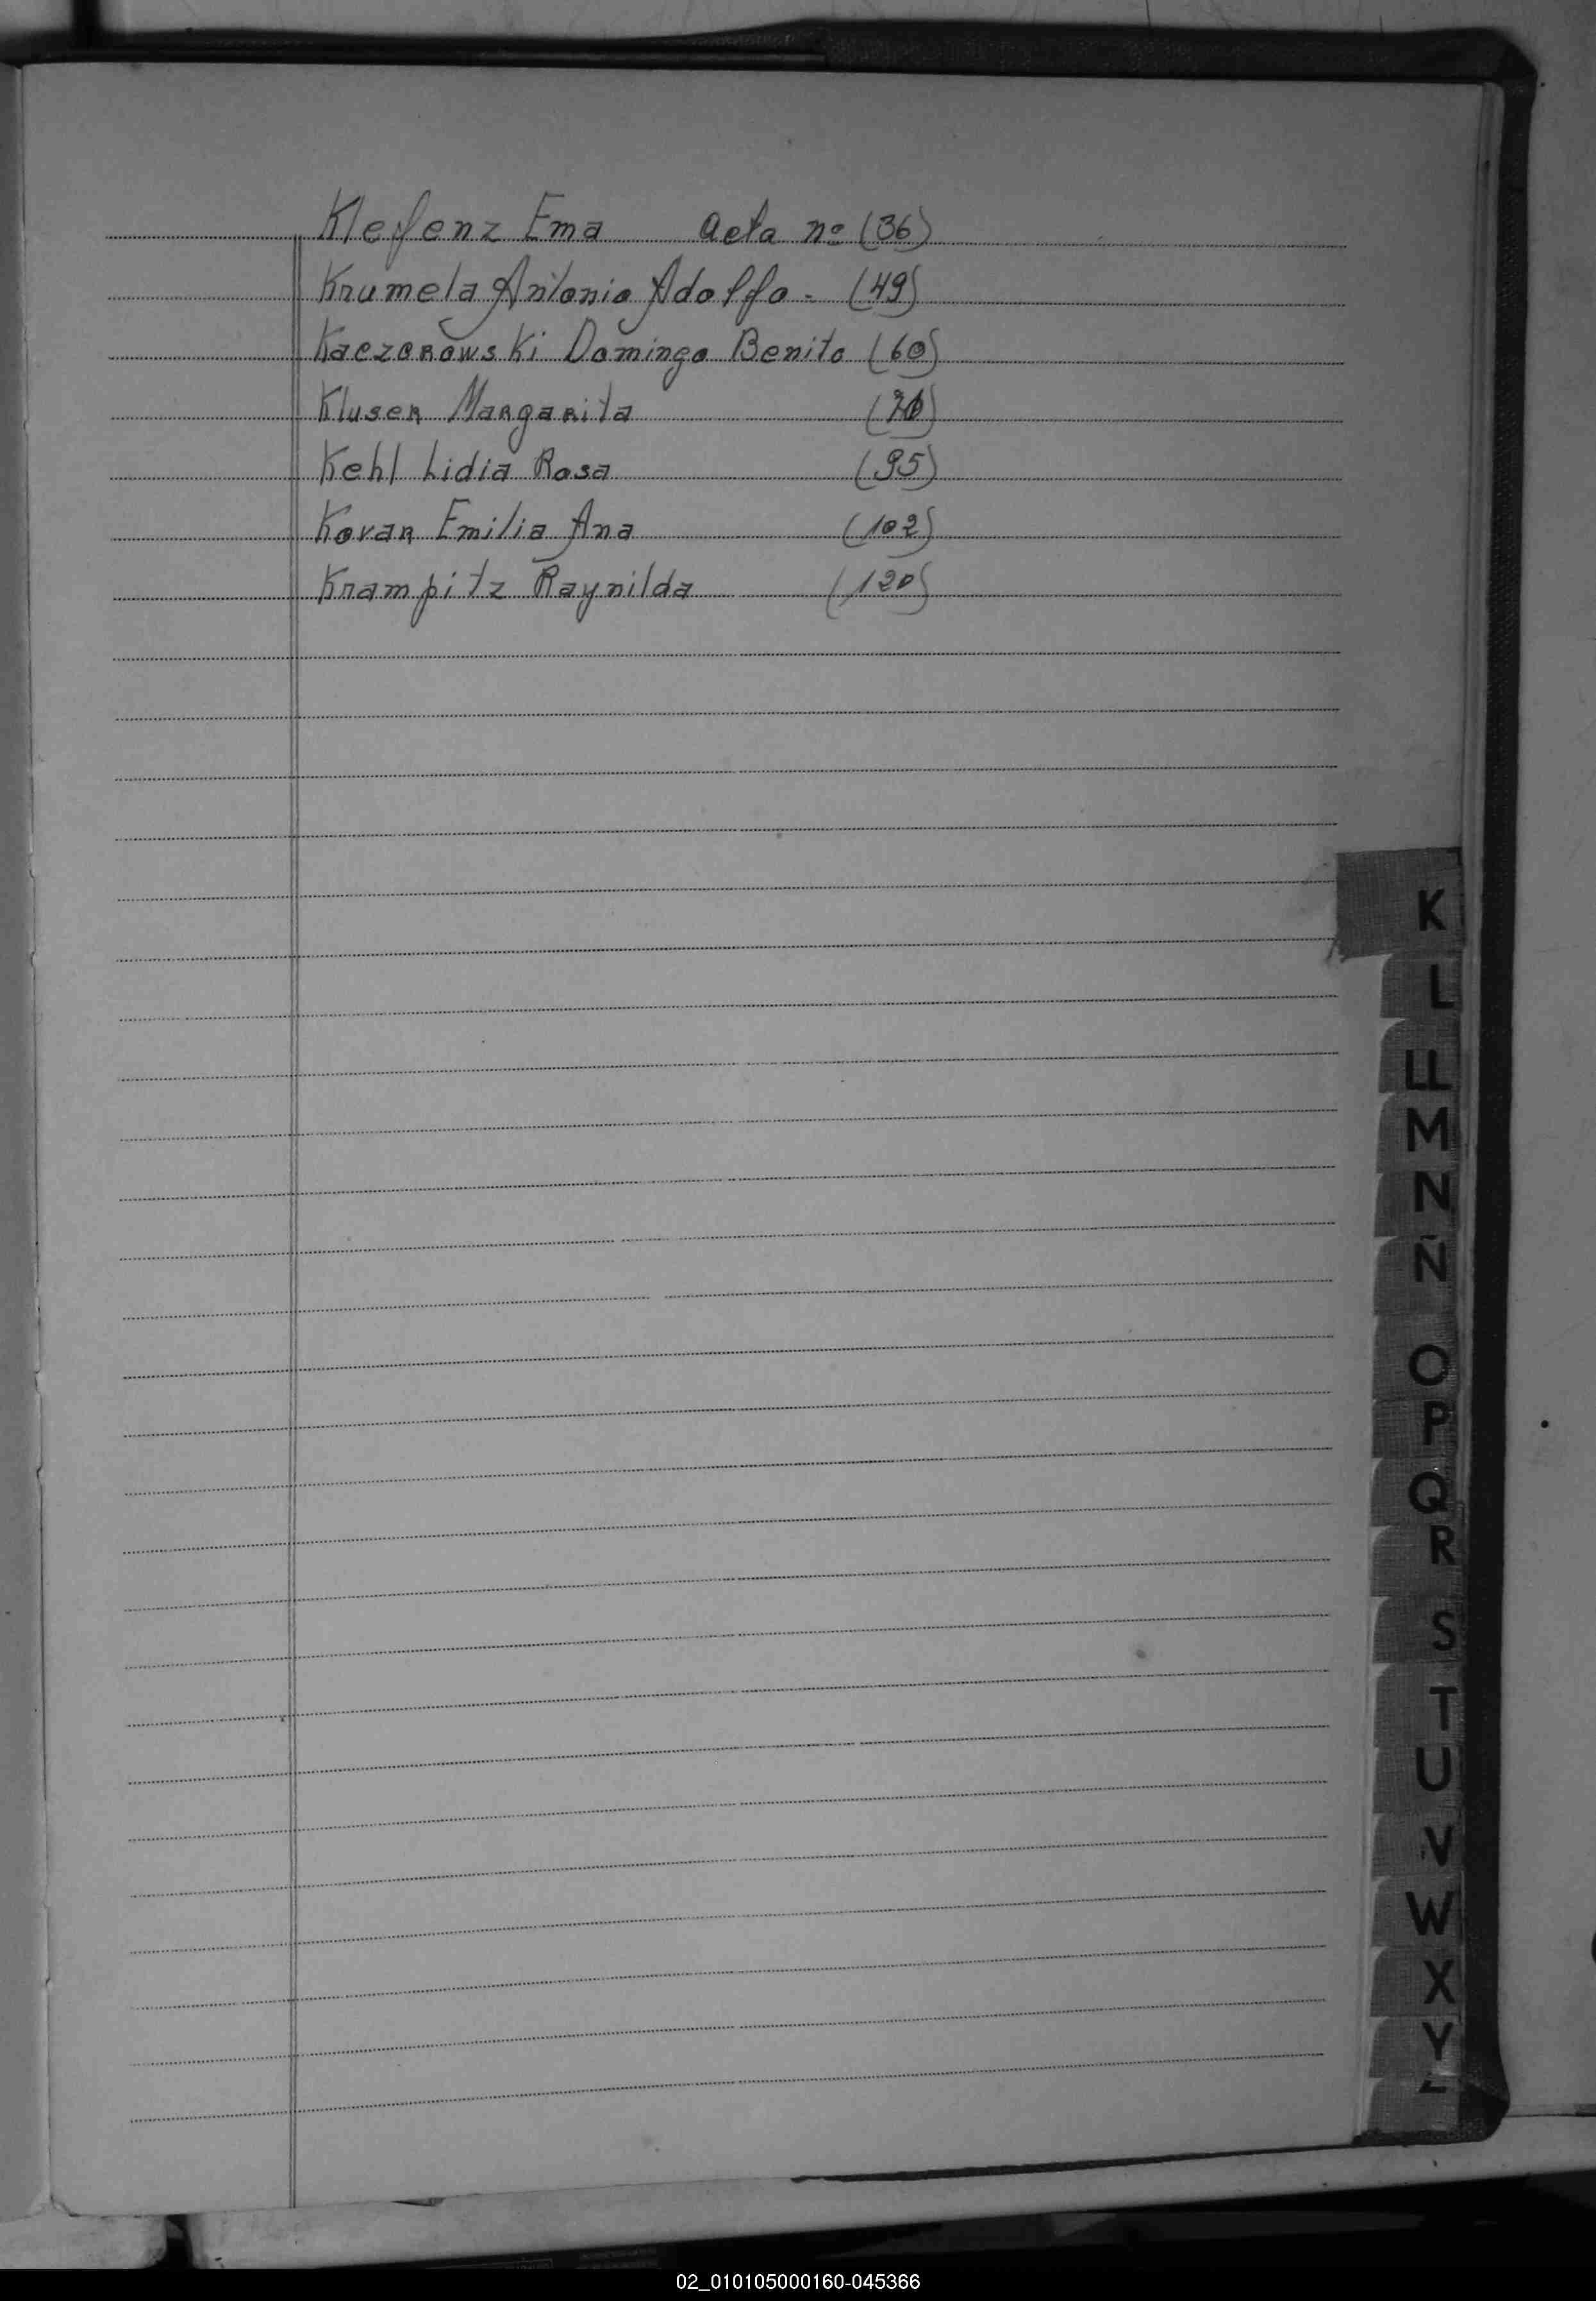 Klefenz Ema acta nº (36)
Krumela Antonio Adolfo - (49)
Kaczorowski Domingo Benito (60)
Kluser Margarita
Kehl Lidia Rosa (95)
Kovar Emilia Ana (102)
Krampitz Raynilda (120)
K
L
LL
M
N
Ñ
O
P
Q
R
S
T
U
V
W
X
Y
02_010105000160-045366